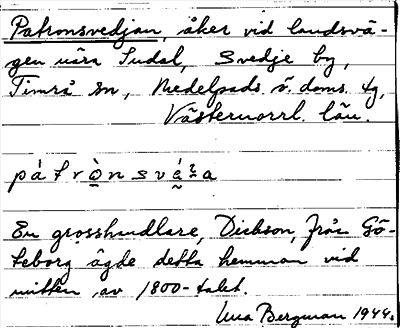 Patronsvedjan, åker vid landsvä-
gen nära Sudal, Svedje by,
Timrå sn, Medelpads ö. doms. tg,
Västernorrl. län.
pátrò̱nsvé̱ʒa
En grosshandlare, Dickson, från Gö-
teborg ägde detta hemman vid
mitten av 1800-talet.
Una Bergman 1944.